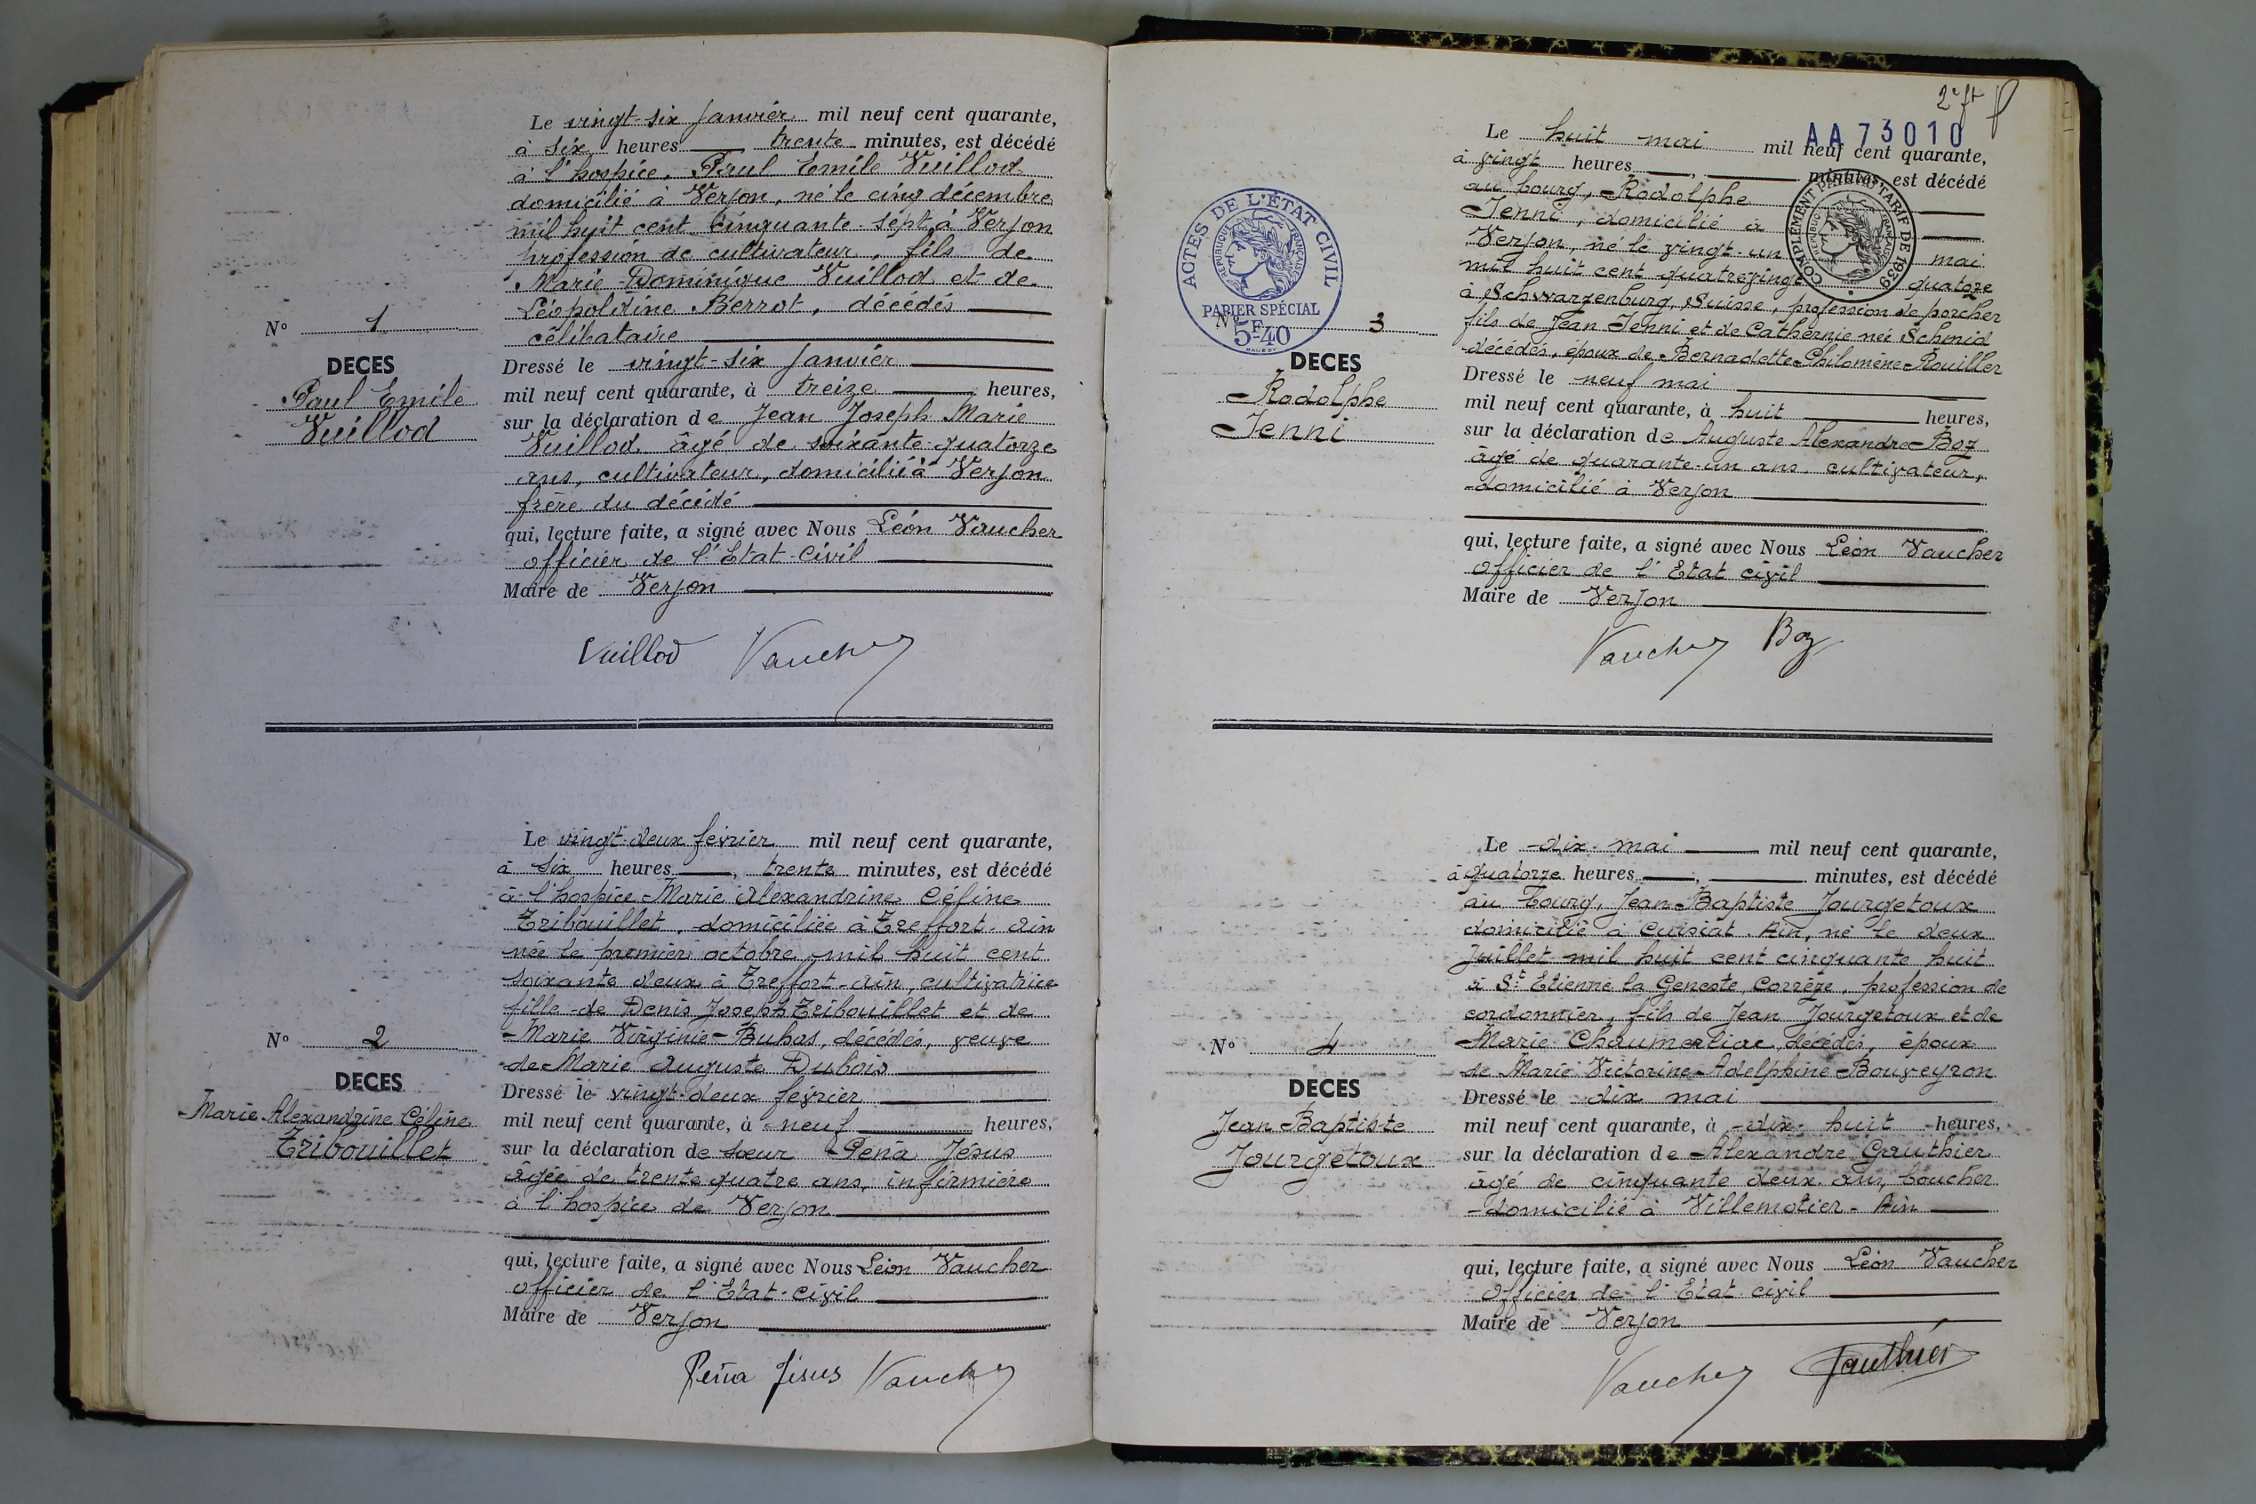 Le vingt-six janvier mil neuf cent quarante,
à six heures trente minutes, est décédé
à l'hospice, Paul Emile Vuillod
domicilié à Verjon, né le cinq décembre
mil huit cent cinquante-sept à Verjon
profession de cultivateur, fils de
Marie Dominique Vuillod et de
Léopoldine Berrot, décédés
célibataire
N° 1
DECES
Paul Emile
Vuillod
Dressé le vingt-six janvier
mil neuf cent quarante, à treize heures,
sur la déclaration de Jean Joseph Marie
Vuillod âgé de soixante-quatorze
ans, cultivateur, domicilié à Verjon
frère du décédé
qui, lecture faite, a signé avec Nous Léon Vaucher
officier de l'Etat-Civil
Maire de Verjon
Vuillod Vaucher
Le vingt-deux février mil neuf cent quarante,
à six heures, trente minutes, est décédé
à l'hospice Marie Alexandrine Céline
Tribouillet, domiciliée à Treffort-Ain
née le premier octobre mil huit cent
soixante deux à Treffort-Ain, cultivatrice
fille de Denis Joseph Tribouillet et de
Marie Virginie Buhas, décédés, veuve
de Marie Auguste Dubois
N° 2
DECES
Marie Alexandrine Céline
Tribouillet
Dressé le vingt-deux février
mil neuf cent quarante, à neuf heures,
sur la déclaration de sœur Pena Jésus
âgée de trente quatre ans, infirmière
à l'hospice de Verjon
qui, lecture faite, a signé avec Nous Léon Vaucher
officier de l'Etat-civil
Maire de Verjon
Peña Jésus Vaucher
2e ft
AA 73010
Le huit mai mil neuf cent quarante,
à vingt heures, minutes, est décédé
au bourg, Rodolphe
Jenni, domicilié à
Verjon, né le vingt-un mai
mil huit cent quatrevingt quatorze
à Schwarzenburg, Suisse, profession de porcher
fils de Jean Jenni et de Cathernie née Schmid
décédés, époux de Bernadette Philomène Rouiller
ACTES DE L'ÉTAT CIVIL
RÉPUBLIQUE FRANÇAISE
PAPIER SPÉCIAL
5F40
COMPLÉMENT PAYÉ AU TARIF DE 1939
RÉPUBLIQUE FRANÇAISE
N° 3
DECES
Rodolphe
Jenni
Dressé le neuf mai
mil neuf cent quarante, à huit heures,
sur la déclaration de Auguste Alexandre Boz
âgé de quarante-un ans cultivateur,
domicilié à Verjon
qui, lecture faite, a signé avec Nous Léon Vaucher
Officier de l'Etat civil
Maire de Verjon
Vaucher Boz
Le dix mai mil neuf cent quarante,
à quatorze heures, minutes, est décédé
au bourg, Jean-Baptiste Jourgetoux
domicilié à Cuisiat. Ain, né le deux
Juillet mil huit cent cinquante huit
à St Etienne la Geneste, Corrèze, profession de
cordonnier, fils de Jean Jourgetoux et de
Marie Chaumerliac décédés, époux
de Marie Victorine Adelphine Bouveyron
N° 4
DECES
Jean Baptiste
Jourgetoux
Dressé le dix mai
mil neuf cent quarante, à dix-huit heures,
sur la déclaration de Alexandre Gauthier
âgé de cinquante deux ans, boucher
domicilié à Villemotier-Ain
qui, lecture faite, a signé avec Nous Léon Vaucher
Officier de l'Etat civil
Maire de Verjon
Vaucher Gauthier